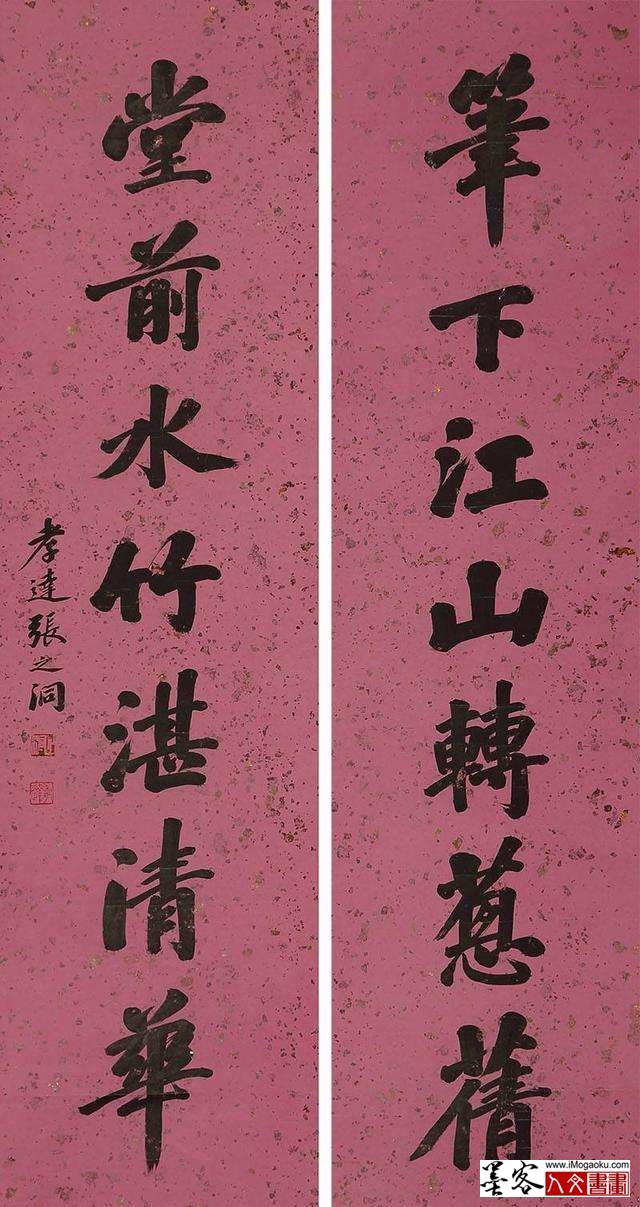 筆下江山轉蔥蒨
堂前水竹湛清華
孝達張之洞
墨客
www.iMogaoku.com
人文書畫